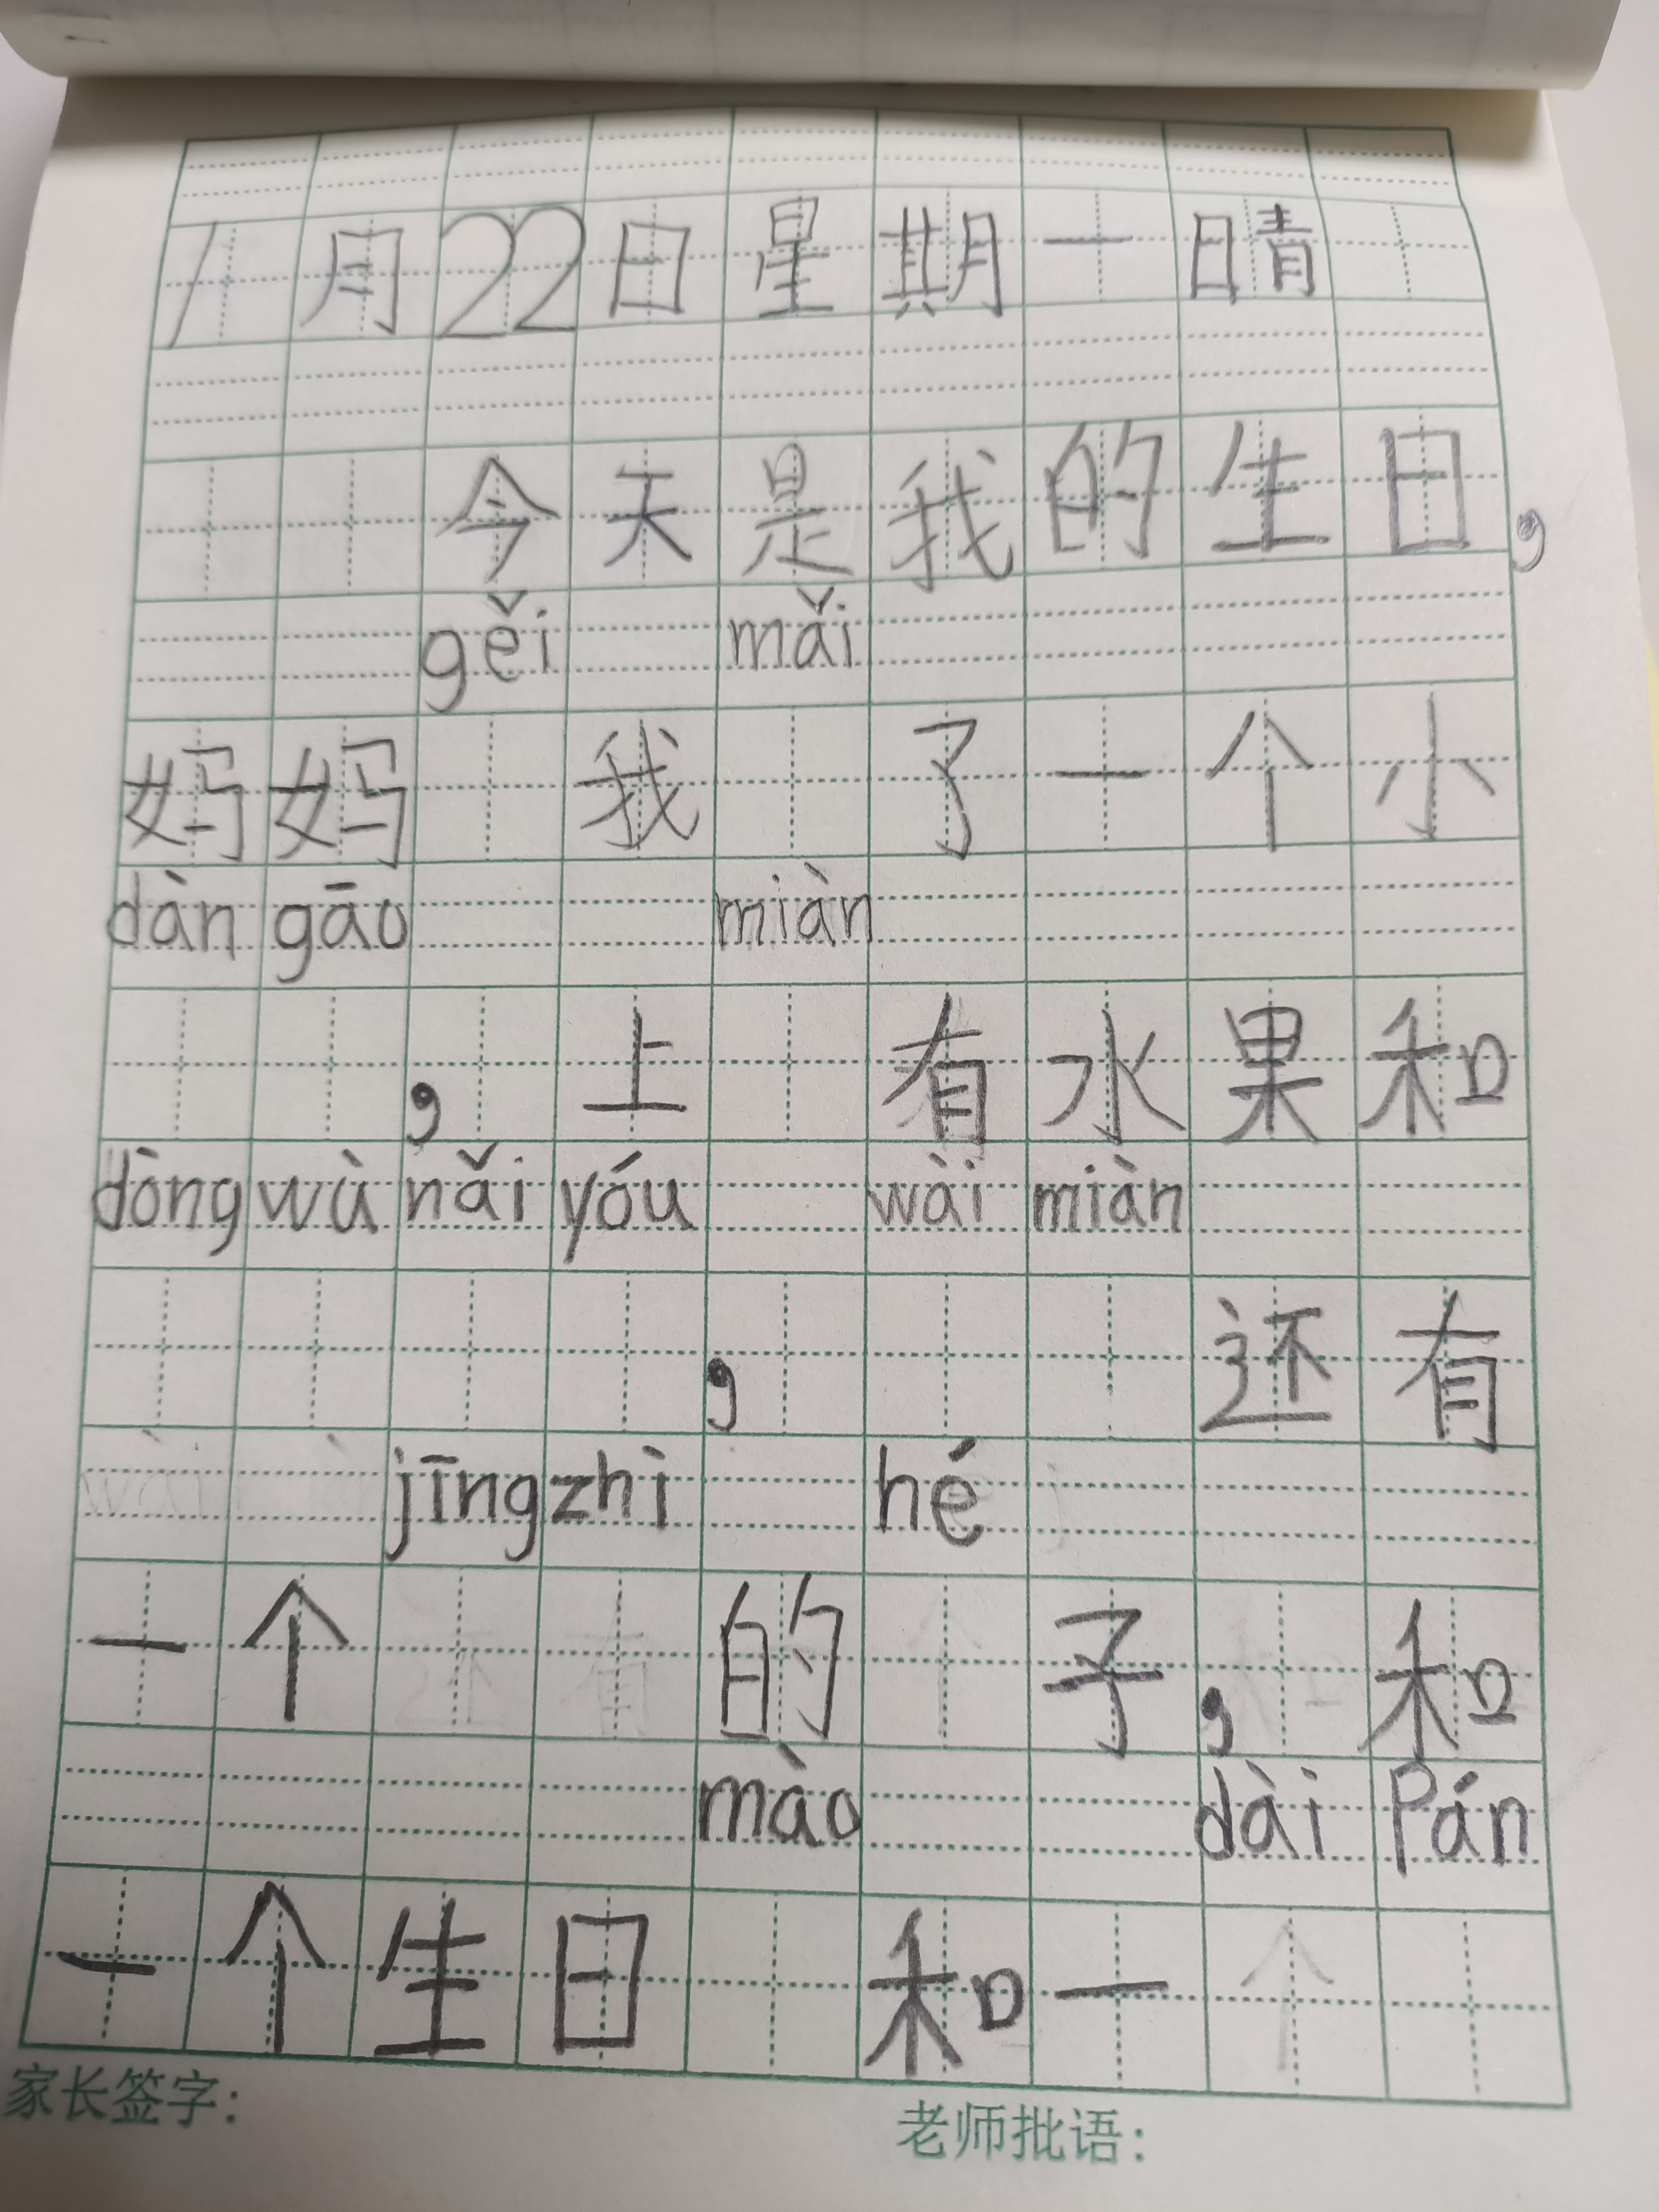 1月22日星期一晴
今天是我的生日,
gěi mǎi
妈妈 我 了一个小
dàn gāo miàn
,上 有水果和
dòng wù nǎi yóu wài miàn
, 还有
jīng zhì hé
一个 的 子,和
mào dài Pán
一个生日 和一个
家长签字:
老师批语: